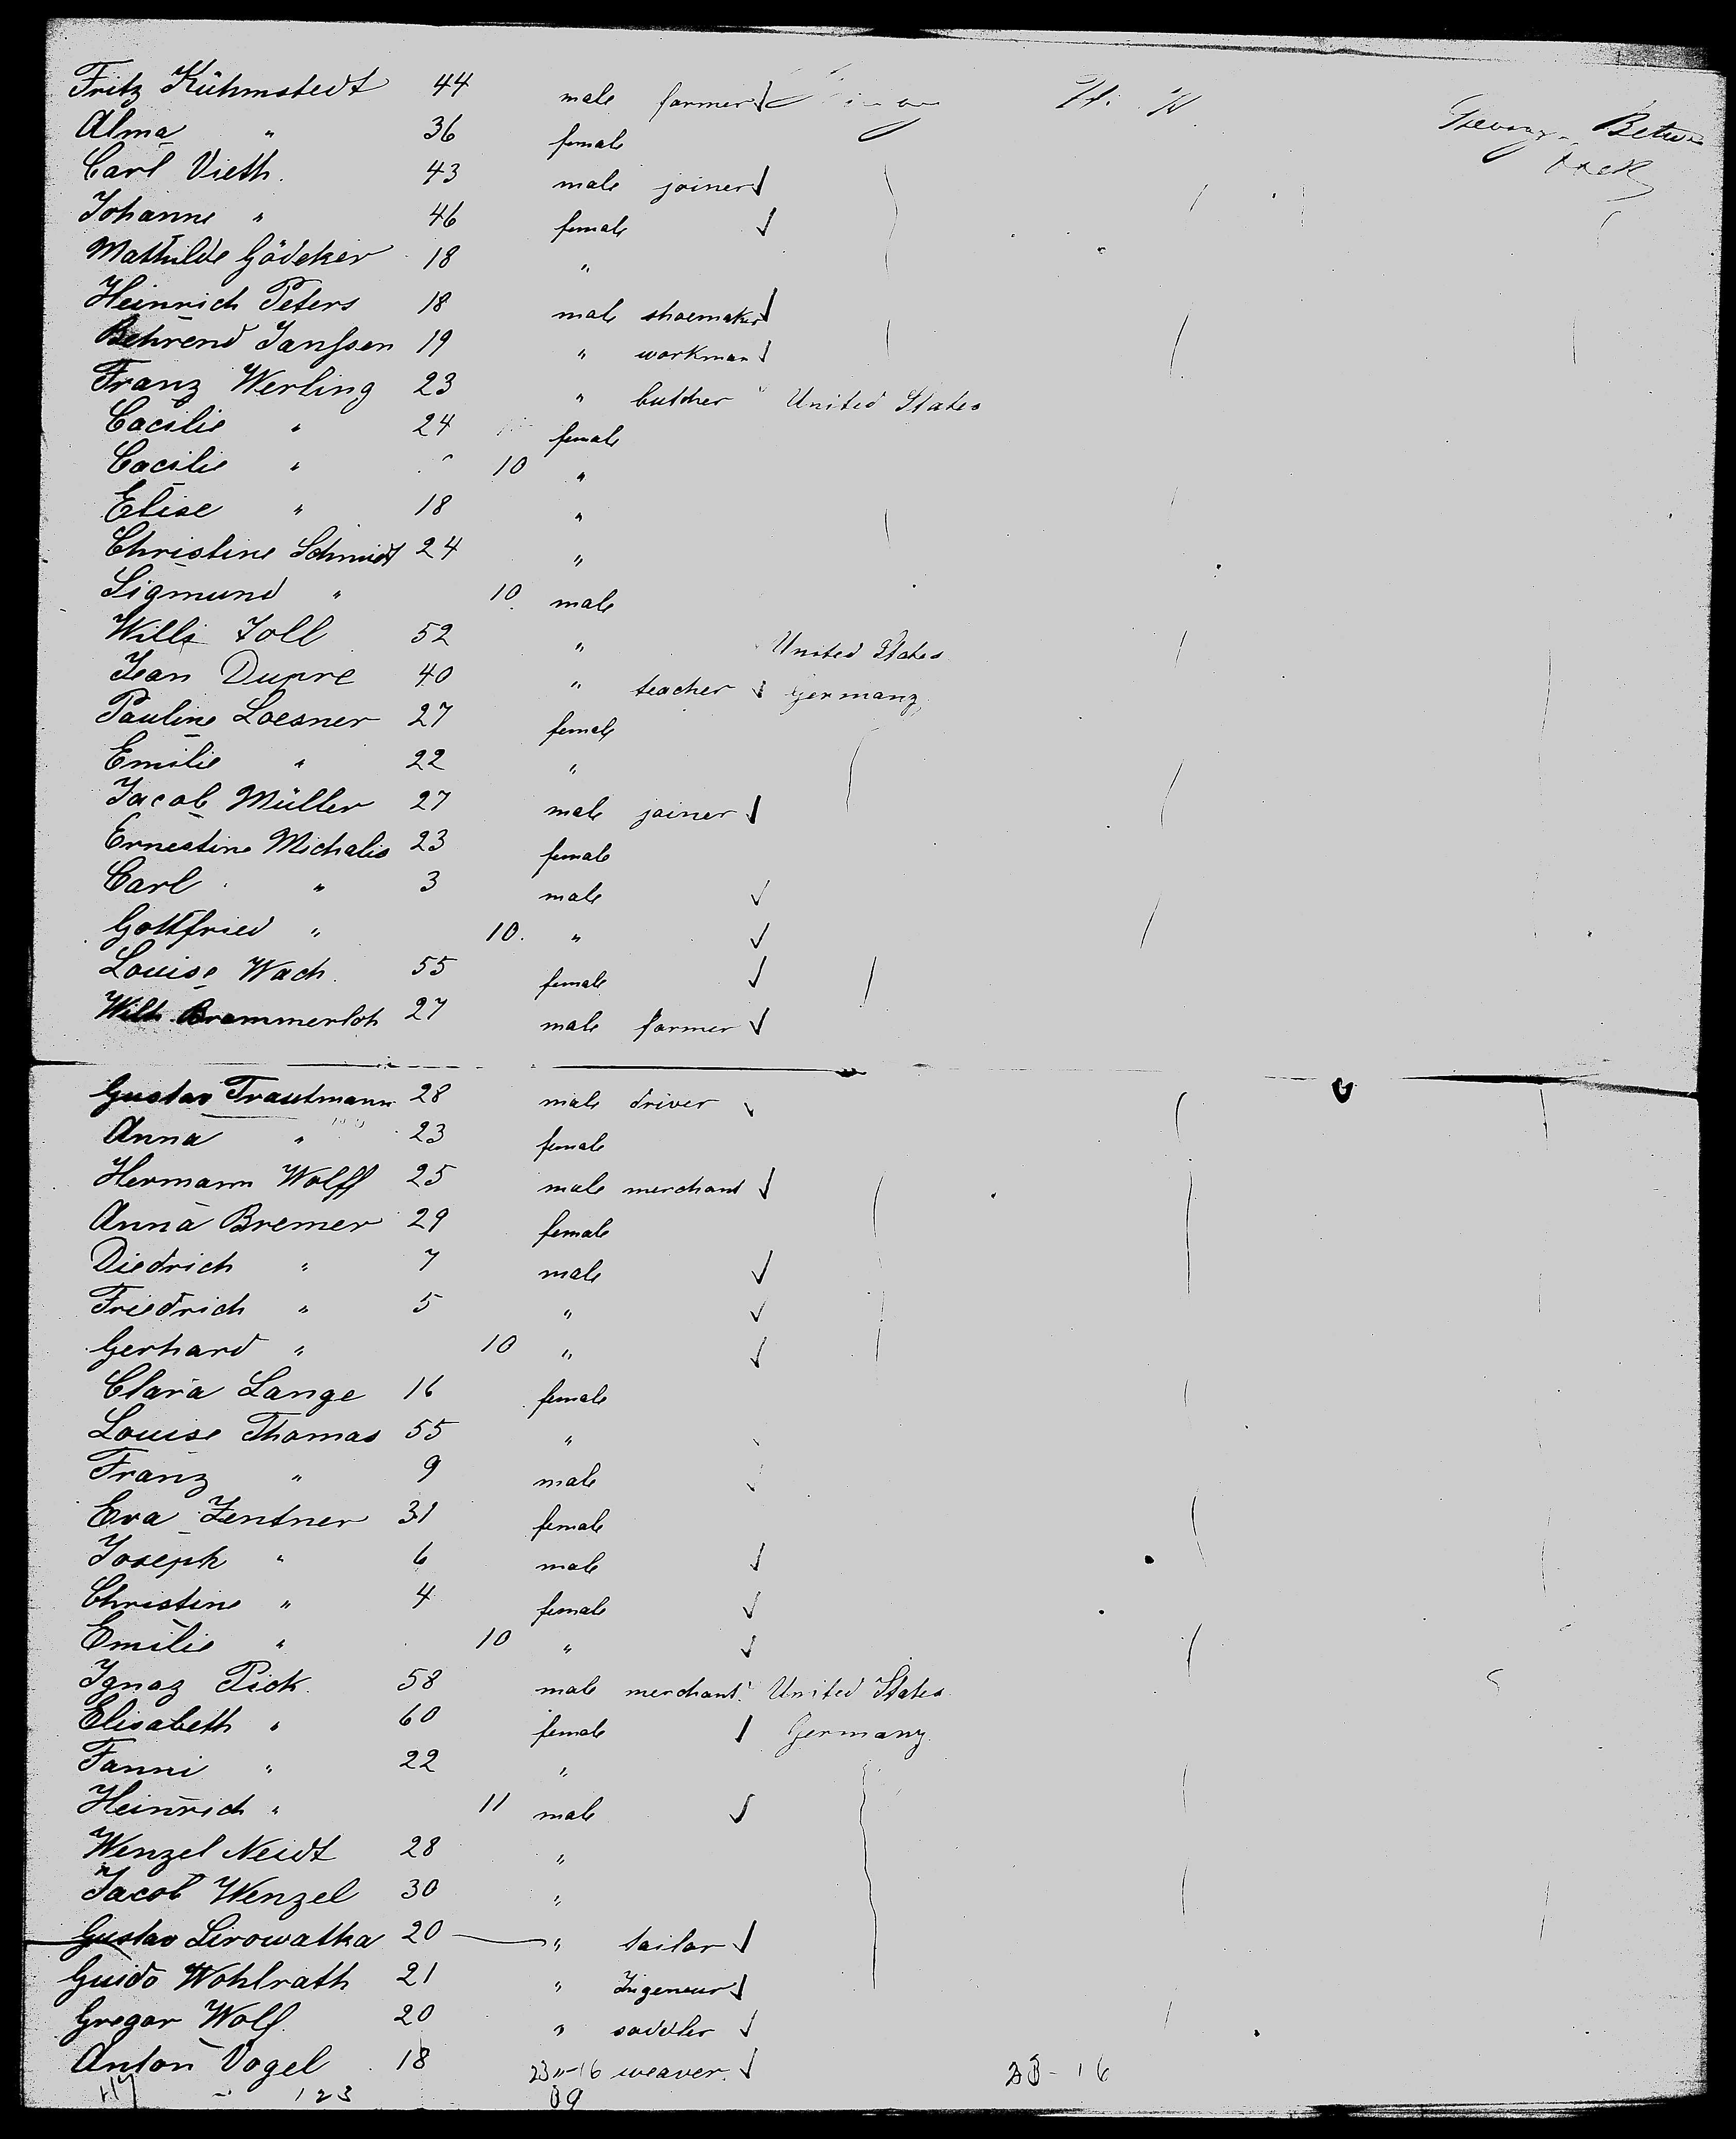 Fritz Kühmstedt 44 male farmer
Steerage Between
Alma " 36 female
deck
Carl Vieth. 43 male joiner
Johanne " 46 female
Mathilde Gödeker 18 "
Heinrich Peters 18 male shoemaker
Behrend Janssen 19 " workman
Franz Werling 23 " butcher United States
Cacilie " 24 female
Cacilie " 10 "
Elise " 18 "
Christine Schmidt 24 "
Sigmund " 10 male
Willi Toll 52 " United States
Jean Dupre 40 " teacher Germany
Pauline Loesner 27 female
Emilie " 22 "
Jacob Müller 27 male joiner
Ernestine Michalis 23 female
Carl " 3 male
Gottfried " 10. "
Louise Wach. 55 female
Wilh. Brammerloh 27 male farmer
Gustav Trautmann 28 male driver
Anna " 23 female
Hermann Wolff 25 male merchant
Anna Bremer 29 female
Diedrich " 7 male
Friedrich " 5 "
Gerhard " 10 "
Clara Lange 16 female
Louise Thomas 55 "
Franz " 9 male
Eva Zentner 31 female
Joseph " 6 male
Christine " 4 female
Emilie " 10 "
Ignaz Pick. 58 male merchant. United States
Elisabeth " 60 female Germany
Fanni " 22 "
Heinrich " 11 male
Wenzel Neidt 28 "
Jacob Wenzel 30 "
Gustav Lirowatka 20 " tailor
Guido Wohlrath 21 " Ingeneur
Gregor Wolf. 20 " saddler
Anton Vogel 18 23"-16 weaver. 23-16
117 123 09